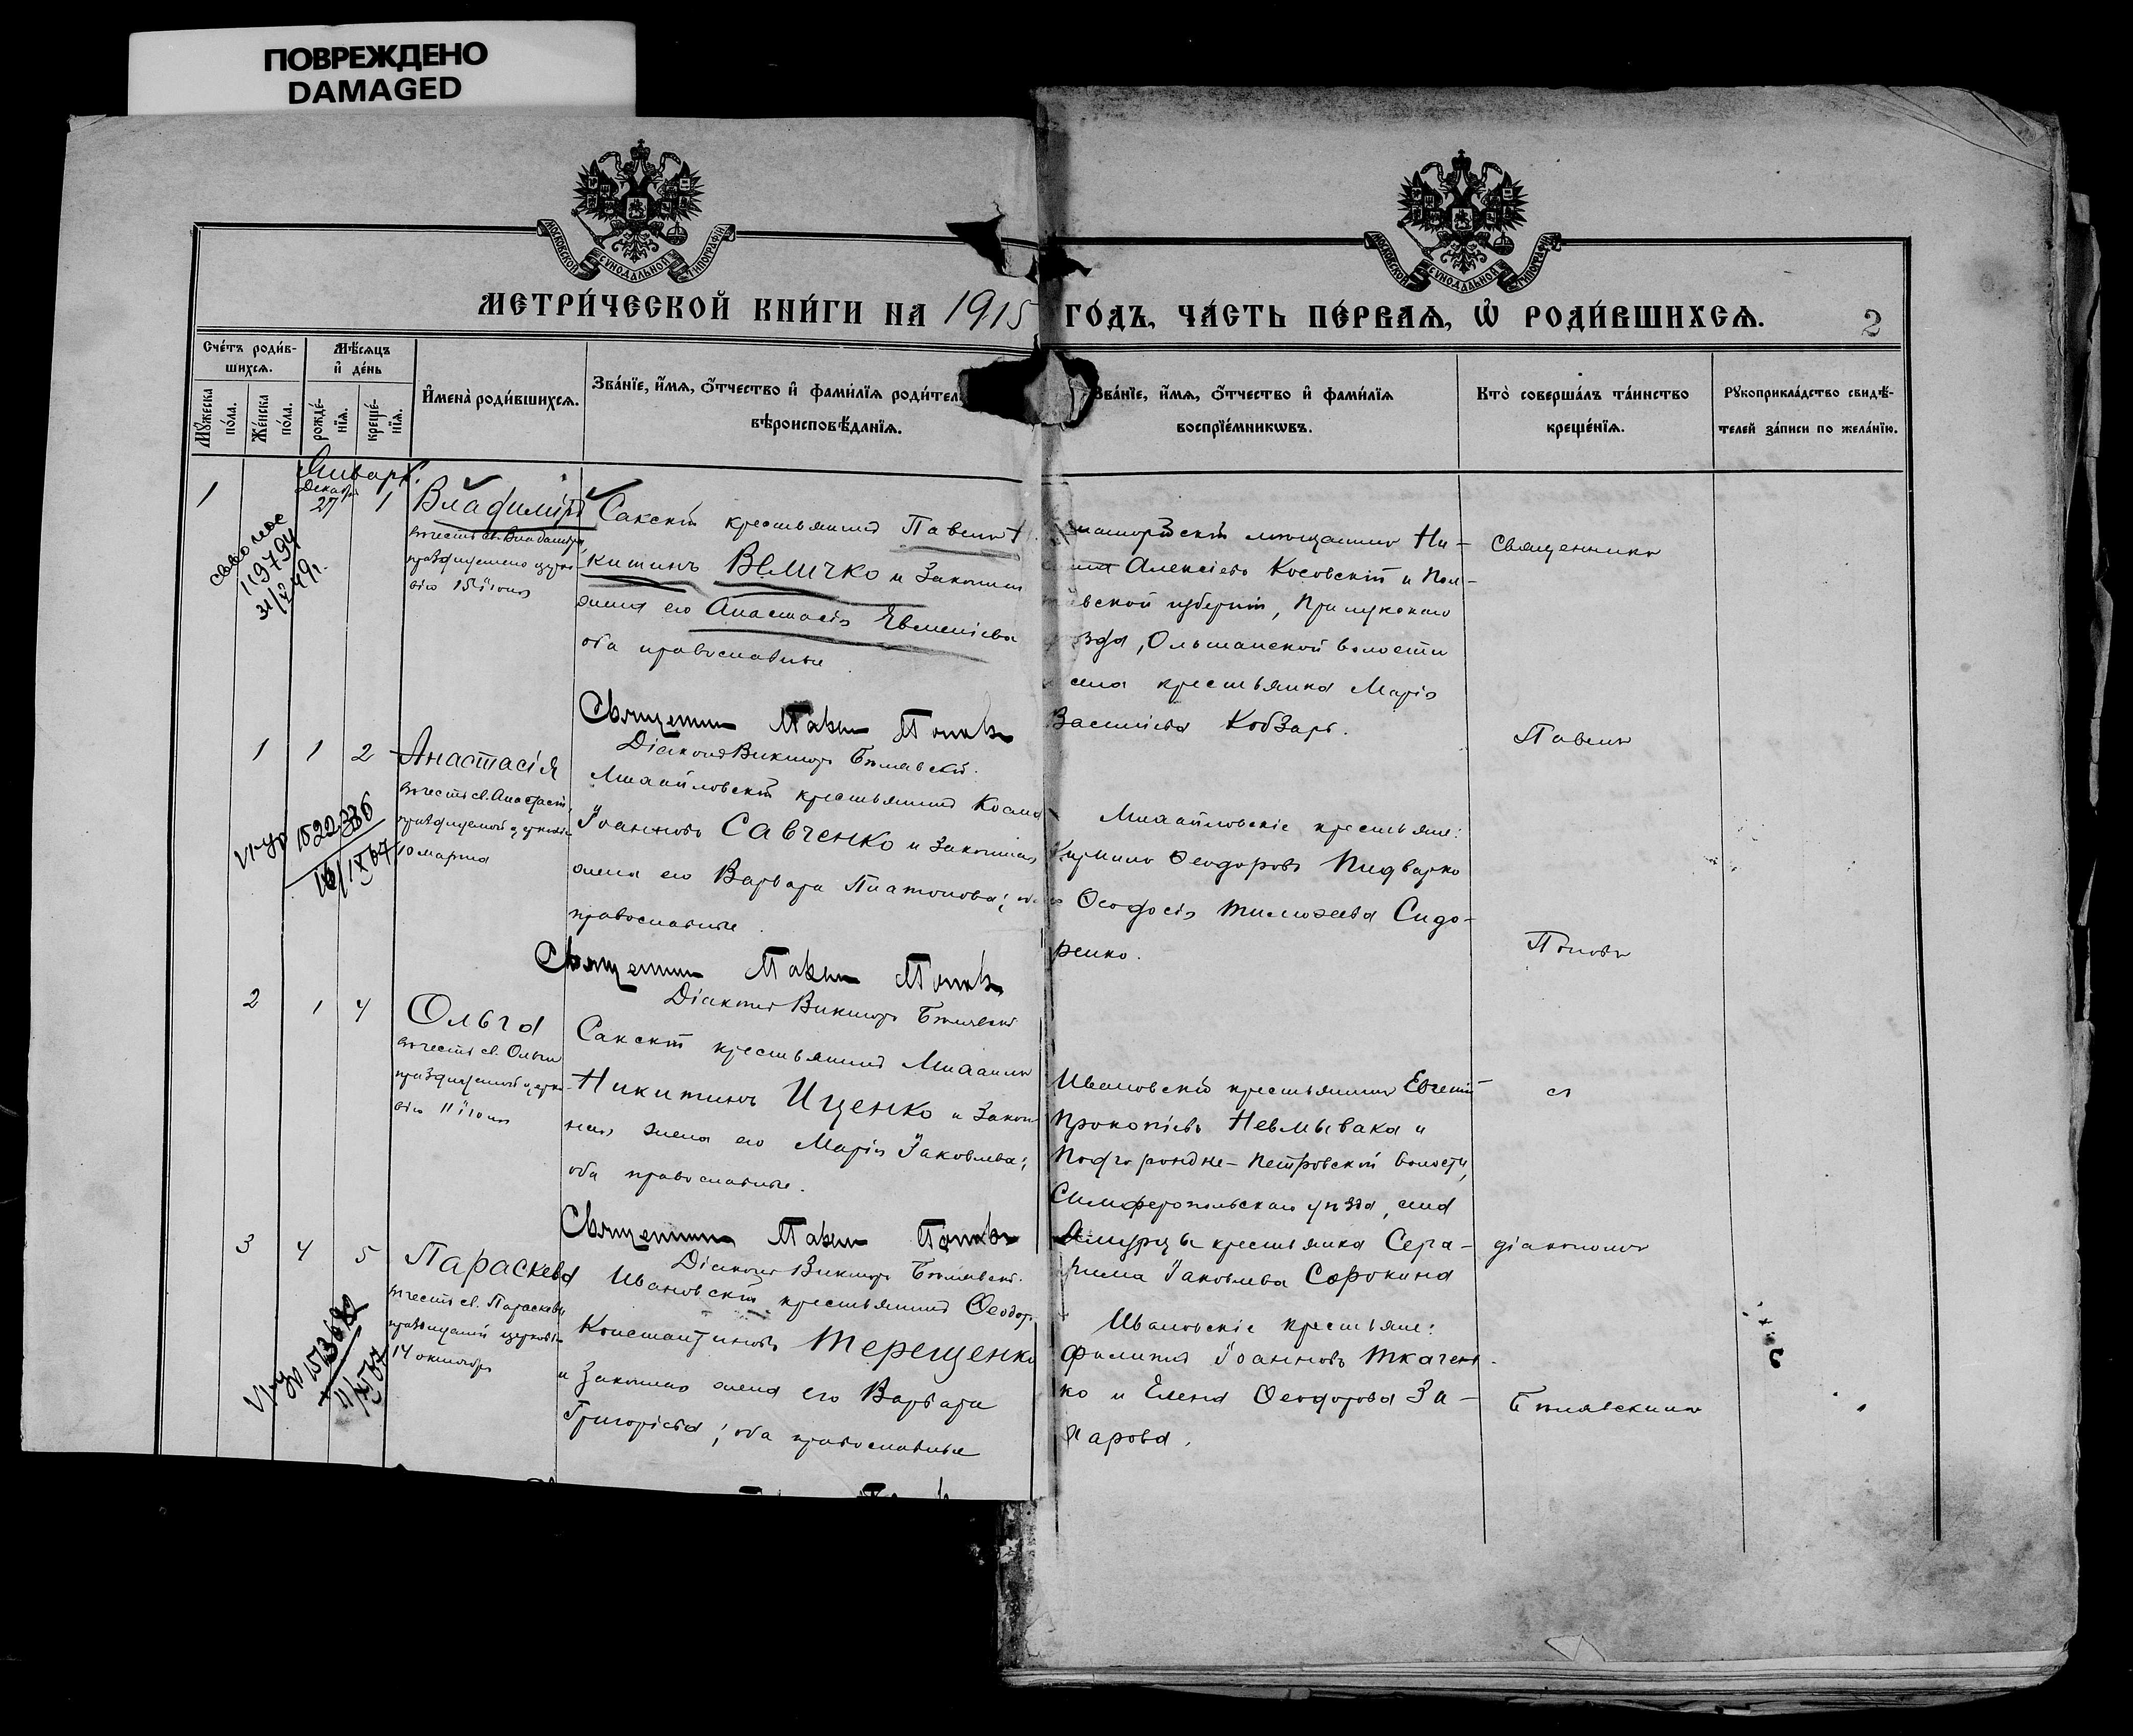 ПОВРЕЖДЕНО
DAMAGED
МОСКОВСКОЙ СУНОДАЛЬНОЙ ТИПОГРАФІИ
МОСКОВСКОЙ СУНОДАЛЬНОЙ ТИПОГРАФІИ
МЕТРИ́ЧЕСКОЙ КНИ́ГИ НА 1915 ГО́ДЪ, ЧА́СТЬ ПЕ́РВАЯ, Ѡ РОДИ́ВШИХСЯ.
2
Сче́тъ роди́в-
шихся.
Мѣ́сяцъ
и де́нь
Му́жеска
по́ла.
Же́нска
по́ла.
рожде́-
нія.
креще́-
нія.
Имена̀ роди́вшихся.
Зва́ніе, и́мя, о́тчество и фами́лія роди́тел
вѣроисповѣ́данія.
Зва́ніе, и́мя, о́тчество и фами́лія
воспріе́мниковъ.
Кто̀ соверша́лъ та́инство
креще́нія.
Рукоприкла́дство свидѣ́-
телей за́писи по жела́нію.
Январь.
1
Декабр
27
1
Владиміръ
въ честь св. Владиміра,
15 іюля
119794
Сакскій крестьянинъ Павелъ
китинъ Величко и законная
жена его Анастасія Евменіева
оба православные.
Священникъ Павелъ Поповъ
Діаконъ Викторъ Бѣлявскій.
мѣщанинъ Ни-
Алексіевъ Косовскій и Пол-
вской губерніи, Прилукскаго
ѣзда, Ольшанской волости
села крестьянка Марія
Василіева Кобзарь.
Священникъ
Павелъ
1
1
2
Анастасія
въ честь св. Анастасіи,
празднуемой церковію
10 марта
1522386
Михайловскій крестьянинъ Косма
Іоанновъ Савченко и законная
жена его Варвара Платонова; оба
православные.
Священникъ Павелъ Поповъ
Діаконъ Викторъ Бѣлявскій
Михайловскіе крестьяне:
Ѳеодоровъ Пидварко
Ѳеодосія Тимоѳеева Сидо-
ренко.
Поповъ
2
1
4
Ольга
въ честь св. Ольги
празднуемой церко-
вію 11 іюля
Сакскій крестьянинъ Михаилъ
Никитинъ Иценко и закон
ная жена его Марія Іаковлева;
оба православные.
Священникъ Павелъ Поповъ
Діаконъ Викторъ Бѣлявскій.
Ивановскій крестьянинъ Евгеній
Прокопіевъ Невмывака и
Подгородне-Петровской волости,
Симферопольскаго уѣзда, села
крестьянка Сера-
фима Іаковлева Сорокина
съ
діакономъ
3
4
5
Параскева
въ честь св. Параскевы
празднуемой церковію
14 октября
1513682
Ивановскій крестьянинъ Ѳеодоръ
Константиновъ Терещенко
и законная жена его Варвара
Григоріева; оба православные
Ивановскіе крестьяне:
Филиппъ Іоанновъ Ткачен-
ко и Елена Ѳеодорова За-
харова.
Бѣлявскимъ